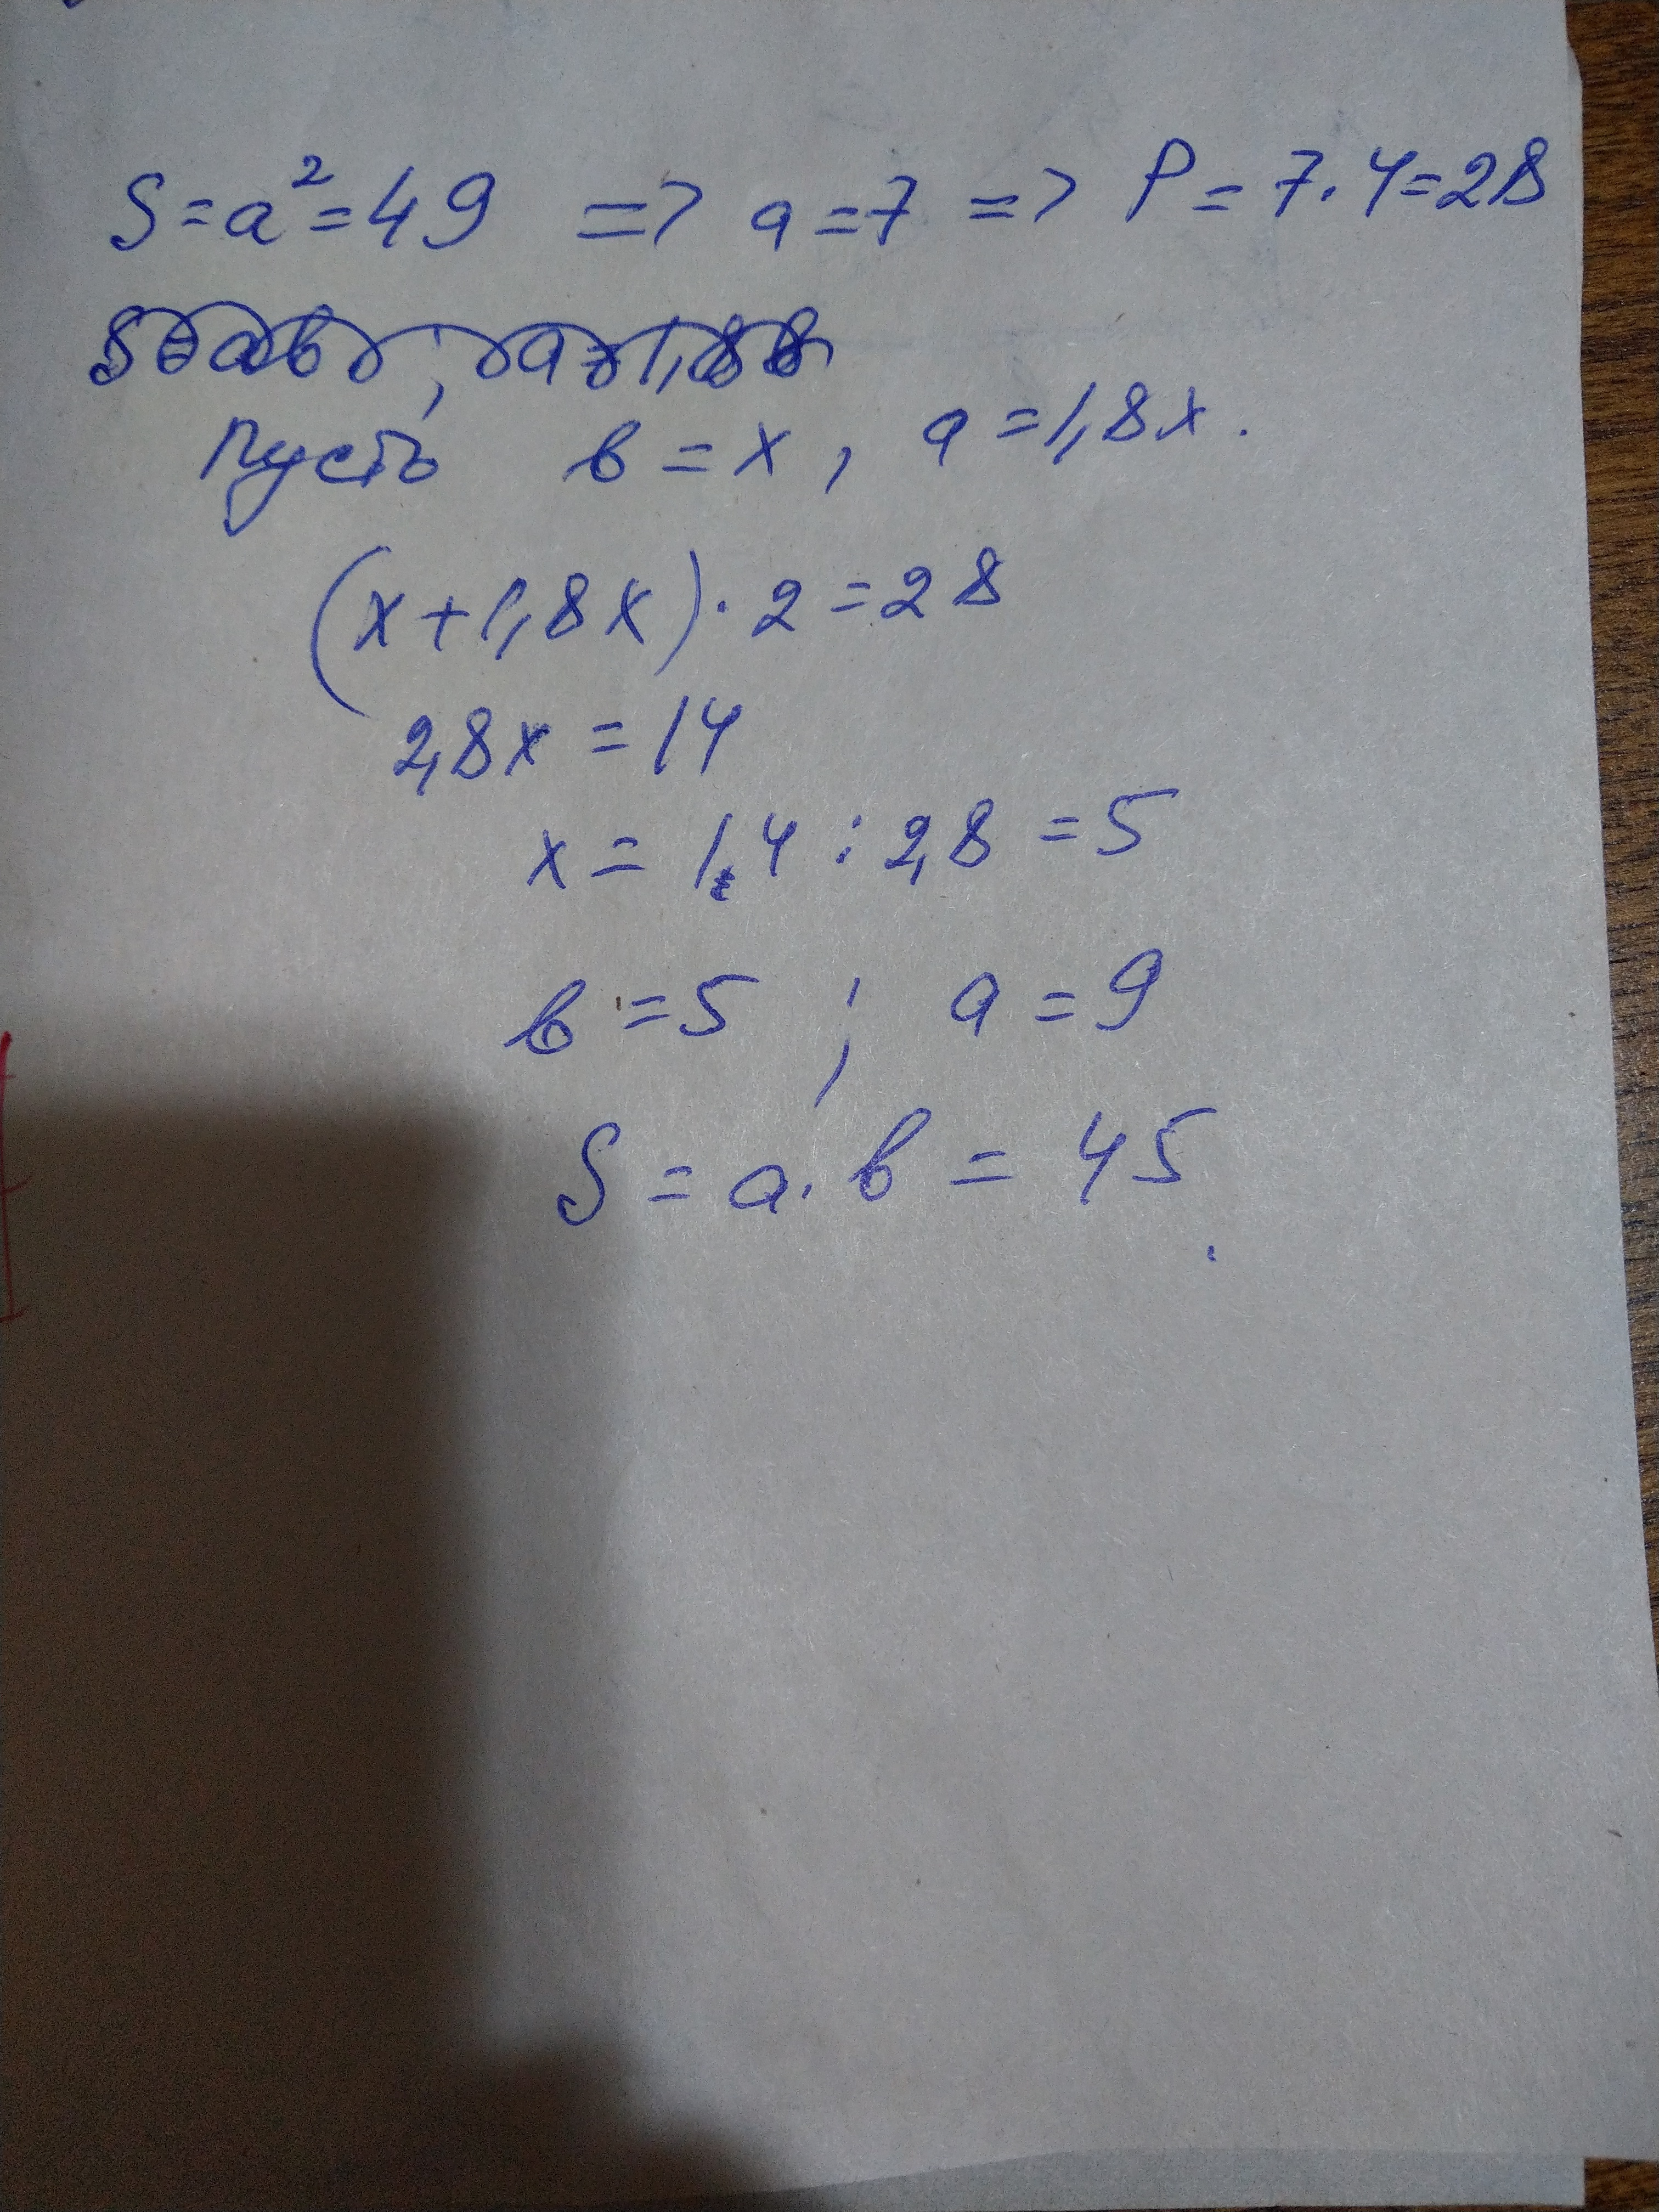 S = a² = 49 => a = 7 => P = 7 · 4 = 28
пусть в = x, a = 1,8x.
(x + 1,8x) · 2 = 28
2,8x = 14
x = 1,4 : 2,8 = 5
в = 5 ; a = 9
S = a · в = 45